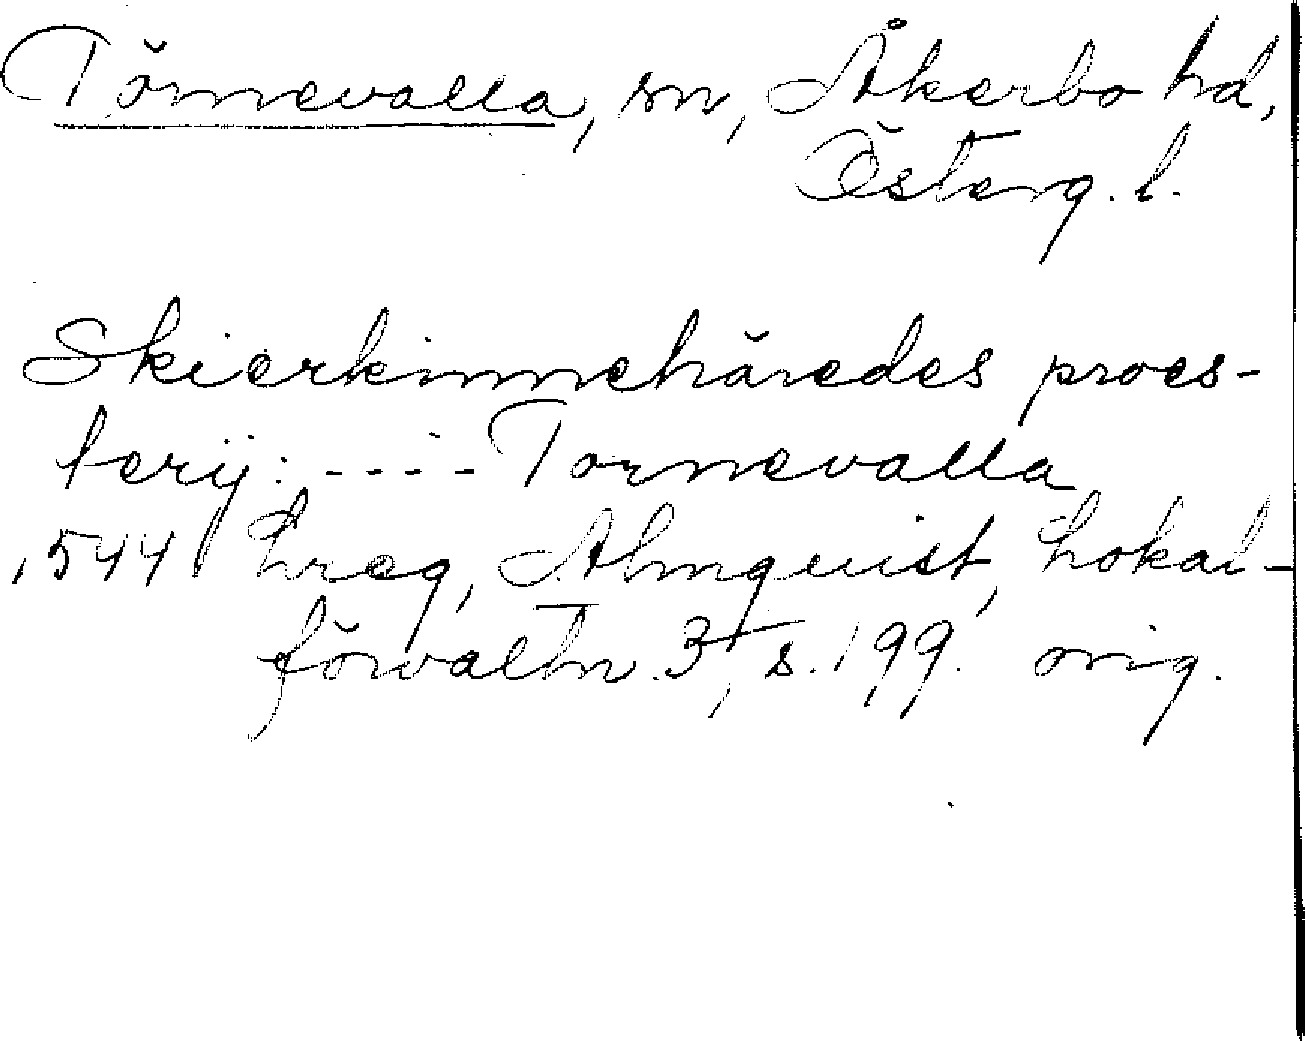 Törnevalla, sn, Åkerbo hd,
Österg. l.
Skierkinnehäredes proes-
terij: ---- Tornevalla
1544 Lreg, Almquist, Lokal-
förvaltn. 3, s. 199. orig.